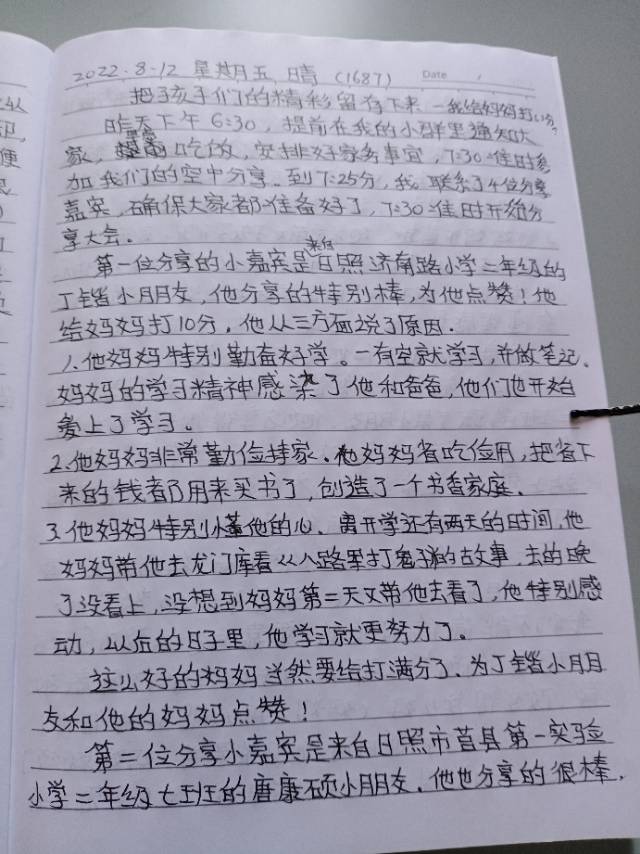 2022.8.12 星期五 晴 (1687)
Date
把孩子们的精彩留存下来—我给妈妈打分
昨天下午6:30，提前在我的小群里通知大
家，吃饭，安排好家务事宜，7:30准时参
加我们的空中分享。到7:25分，我联系了4位分享
嘉宾，确保大家都准备好了，7:30准时开始分
享大会。
第一位分享的小嘉宾是来自日照济南路小学二年级的
丁锴小朋友，他分享的特别棒，为他点赞！他
给妈妈打10分，他从三方面说了原因.
1.他妈妈特别勤奋好学。一有空就学习，并做笔记。
妈妈的学习精神感染了他和爸爸，他们也开始
爱上了学习。
2.他妈妈非常勤俭持家、他妈妈省吃俭用，把省下
来的钱都用来买书了，创造了一个书香家庭.
3.他妈妈特别懂他的心、离开学还有两天的时间，他
妈妈带他去龙门库看八路军打鬼子的故事，去的晚
了没看上，没想到妈妈第二天又带他去看了，他特别感
动，以后的日子里，他学习就更努力了。
这么好的妈妈当然要给打满分了、为丁锴小朋
友和他的妈妈点赞！
第二位分享小嘉宾是来自日照市莒县第一实验
小学二年级七班的唐康硕小朋友．他也分享的很棒．